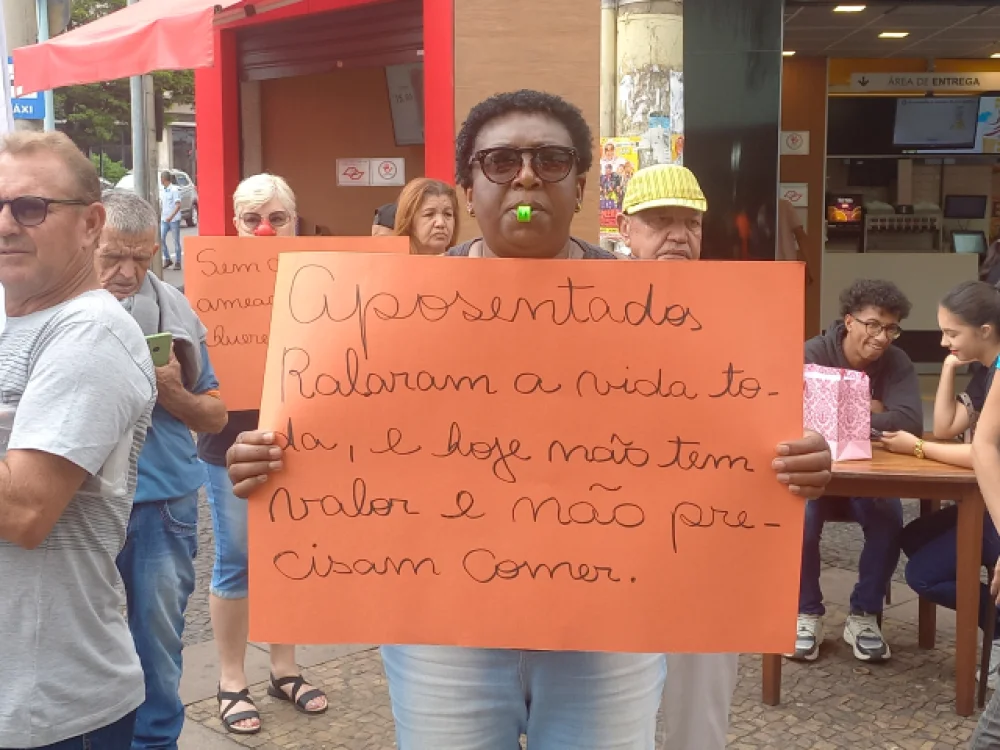 ÁREA DE ENTREGA
ÁXI
Sem
amea
Quere
Aposentados
Ralaram a vida to-
da, e hoje não tem
valor e não pre-
cisam comer.